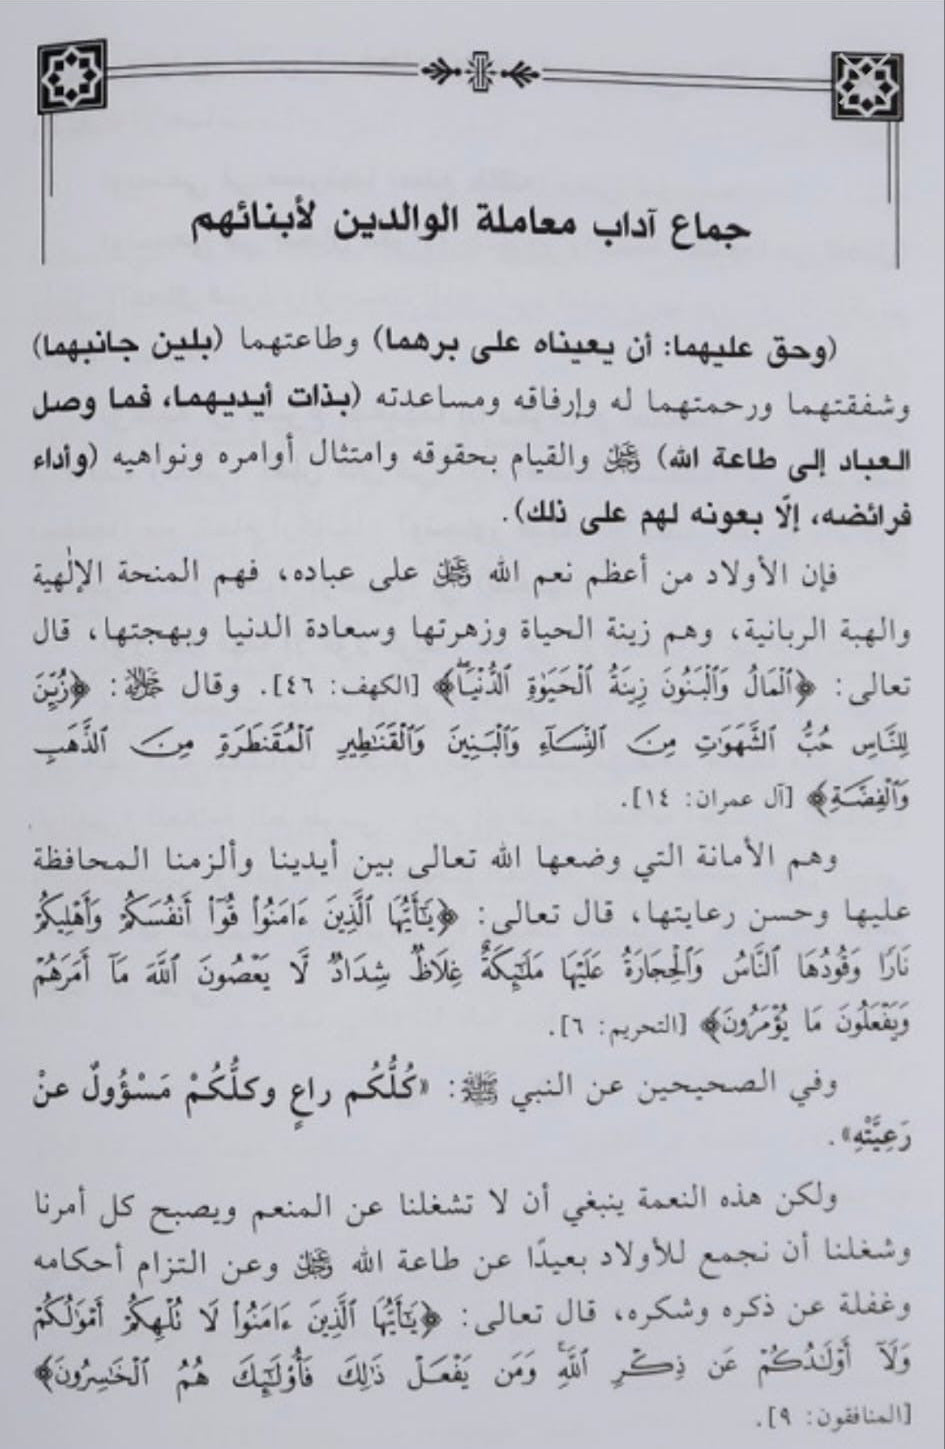 جماع آداب معاملة الوالدين لأبنائهم
(وحق عليهما: أن يعيناه على برهما) وطاعتهما (بلين جانبهما)
وشفقتهما ورحمتهما له وإرفاقه ومساعدته (بذات أيديهما، فما وصل
العباد إلى طاعة الله) ﷿ والقيام بحقوقه وامتثال أوامره ونواهيه (وأداء
فرائضه، إلّا بعونه لهم على ذلك).
فإن الأولاد من أعظم نعم الله ﷿ على عباده، فهم المنحة الإلٰهية
والهبة الربانية، وهم زينة الحياة وزهرتها وسعادة الدنيا وبهجتها، قال
تعالى: ﴿ٱلْمَالُ وَٱلْبَنُونَ زِينَةُ ٱلْحَيَوٰةِ ٱلدُّنْيَاۖ﴾ [الكهف: ٤٦]. وقال ﷻ: ﴿زُيِّنَ
لِلنَّاسِ حُبُّ ٱلشَّهَوَٰتِ مِنَ ٱلنِّسَآءِ وَٱلْبَنِينَ وَٱلْقَنَٰطِيرِ ٱلْمُقَنطَرَةِ مِنَ ٱلذَّهَبِ
وَٱلْفِضَّةِ﴾ [آل عمران: ١٤].
وهم الأمانة التي وضعها الله تعالى بين أيدينا وألزمنا المحافظة
عليها وحسن رعايتها، قال تعالى: ﴿يَٰٓأَيُّهَا ٱلَّذِينَ ءَامَنُوا۟ قُوٓا۟ أَنفُسَكُمْ وَأَهْلِيكُمْ
نَارًا وَقُودُهَا ٱلنَّاسُ وَٱلْحِجَارَةُ عَلَيْهَا مَلَٰٓئِكَةٌ غِلَاظٌ شِدَادٌ لَّا يَعْصُونَ ٱللَّهَ مَآ أَمَرَهُمْ
وَيَفْعَلُونَ مَا يُؤْمَرُونَ﴾ [التحريم: ٦].
وفي الصحيحين عن النبي ﷺ: «كُلُّكُم راعٍ وكلُّكُمْ مَسْؤُولٌ عنْ
رَعِيَّتْهِ».
ولكن هذه النعمة ينبغي أن لا تشغلنا عن المنعم ويصبح كل أمرنا
وشغلنا أن نجمع للأولاد بعيدًا عن طاعة الله ﷿ وعن التزام أحكامه
وغفلة عن ذكره وشكره، قال تعالى: ﴿يَٰٓأَيُّهَا ٱلَّذِينَ ءَامَنُوا۟ لَا تُلْهِكُمْ أَمْوَٰلُكُمْ
وَلَآ أَوْلَٰدُكُمْ عَن ذِكْرِ ٱللَّهِۚ وَمَن يَفْعَلْ ذَٰلِكَ فَأُو۟لَٰٓئِكَ هُمُ ٱلْخَٰسِرُونَ﴾
[المنافقون: ٩].